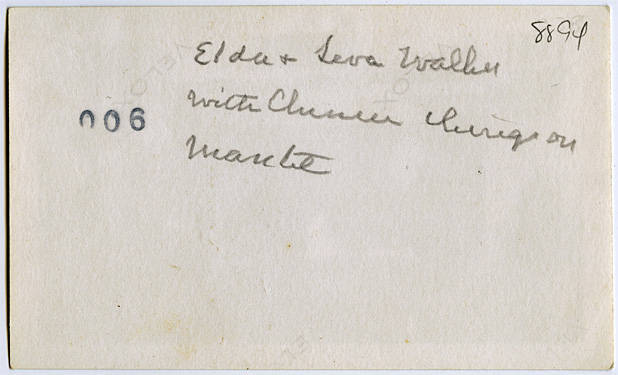 8894
Elda + Leva Walker
006
with Chinese things on
Mantel